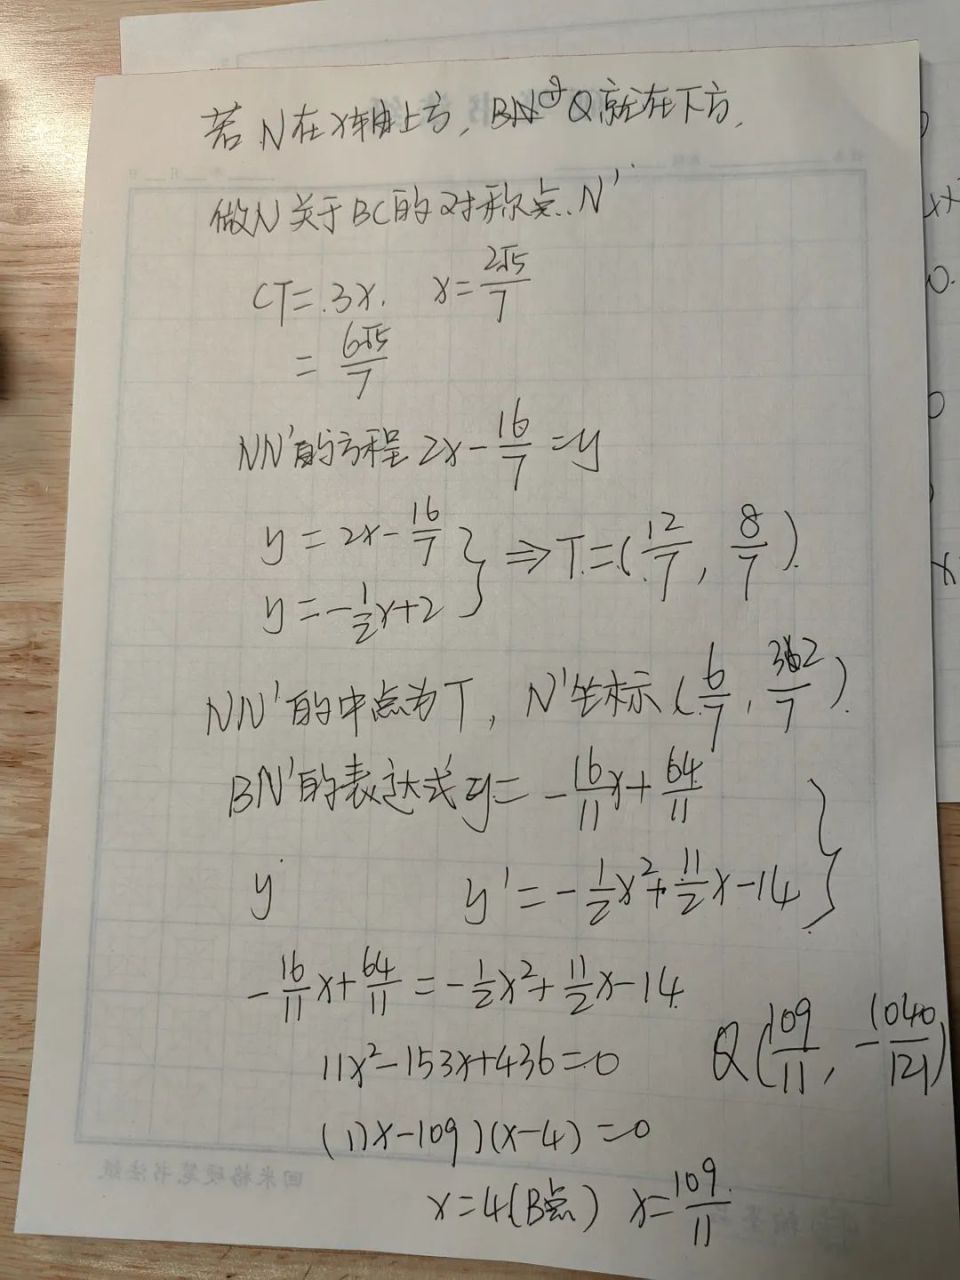 若N在x轴上方，BN Q就在下方，
做N关于BC的对称点N'
CT=3x. x=2√5/7
=6√5/7
NN'的方程 2x-16/7=y
y=2x-16/7
y=-1/2x+2 } ⇒T=(12/7, 8/7)
NN'的中点为T，N'坐标(6/7, 32/7)
BN'的表达式 y=-16/11x+64/11
y y'=-1/2x²+11/2x-14 }
-16/11x+64/11=-1/2x²+11/2x-14
11x²-153x+436=0 Q(109/11, -1040/121)
(11x-109)(x-4)=0
x=4(B点) x=109/11
回米格硬笔书法纸